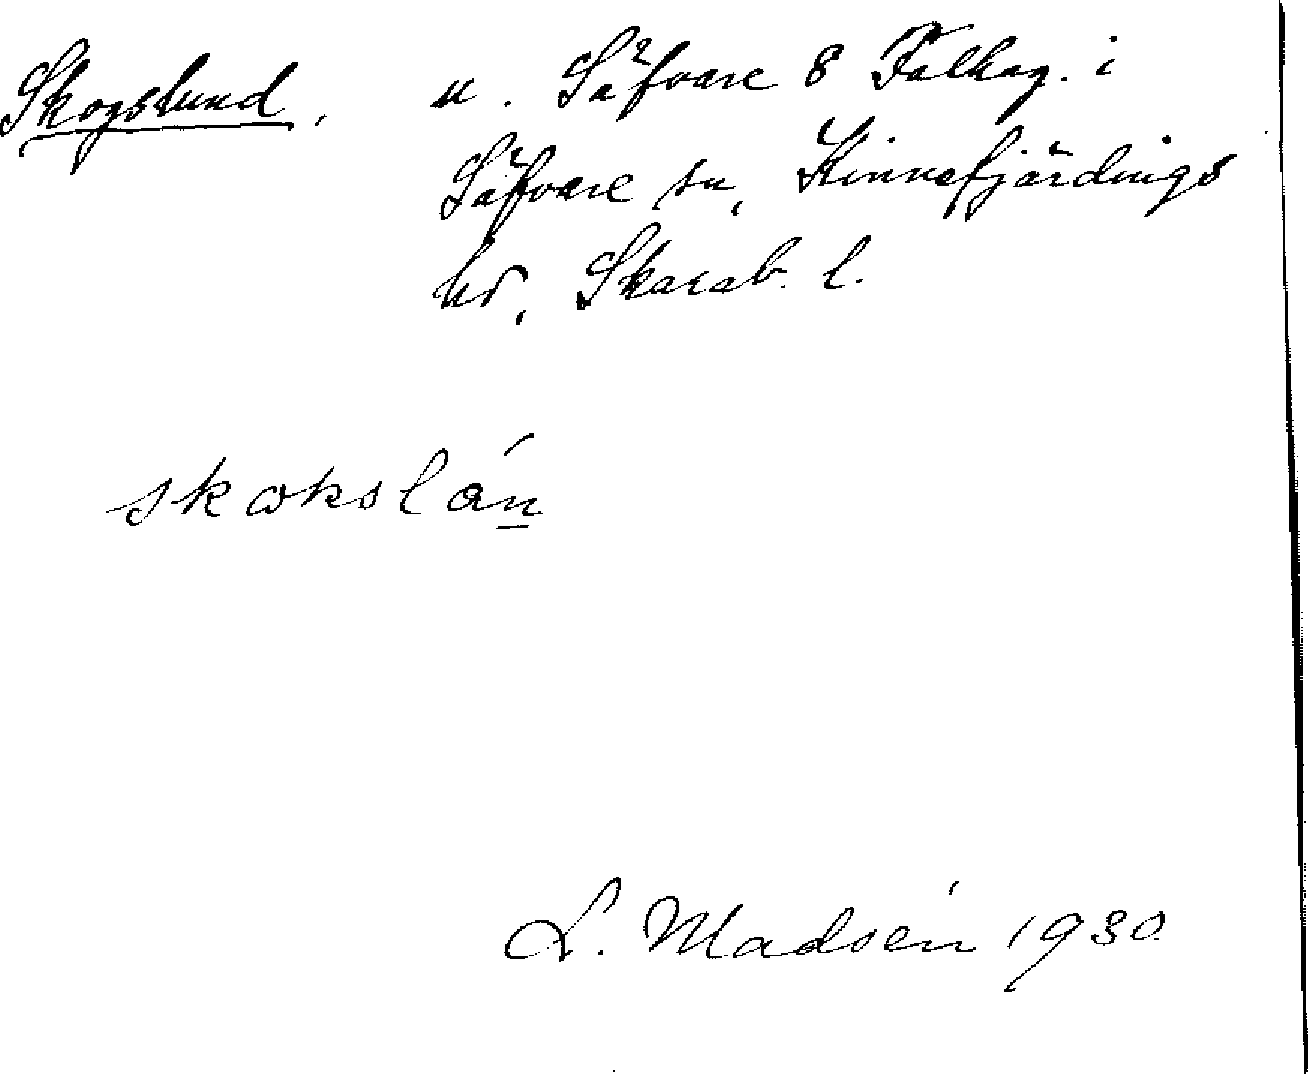 Skogslund, u. Säfvare 8 Falkäg. i
Säfvare sn, Kinnefjärdings
hd, Skarab. l.
skokslán
L. Madsén 1930.